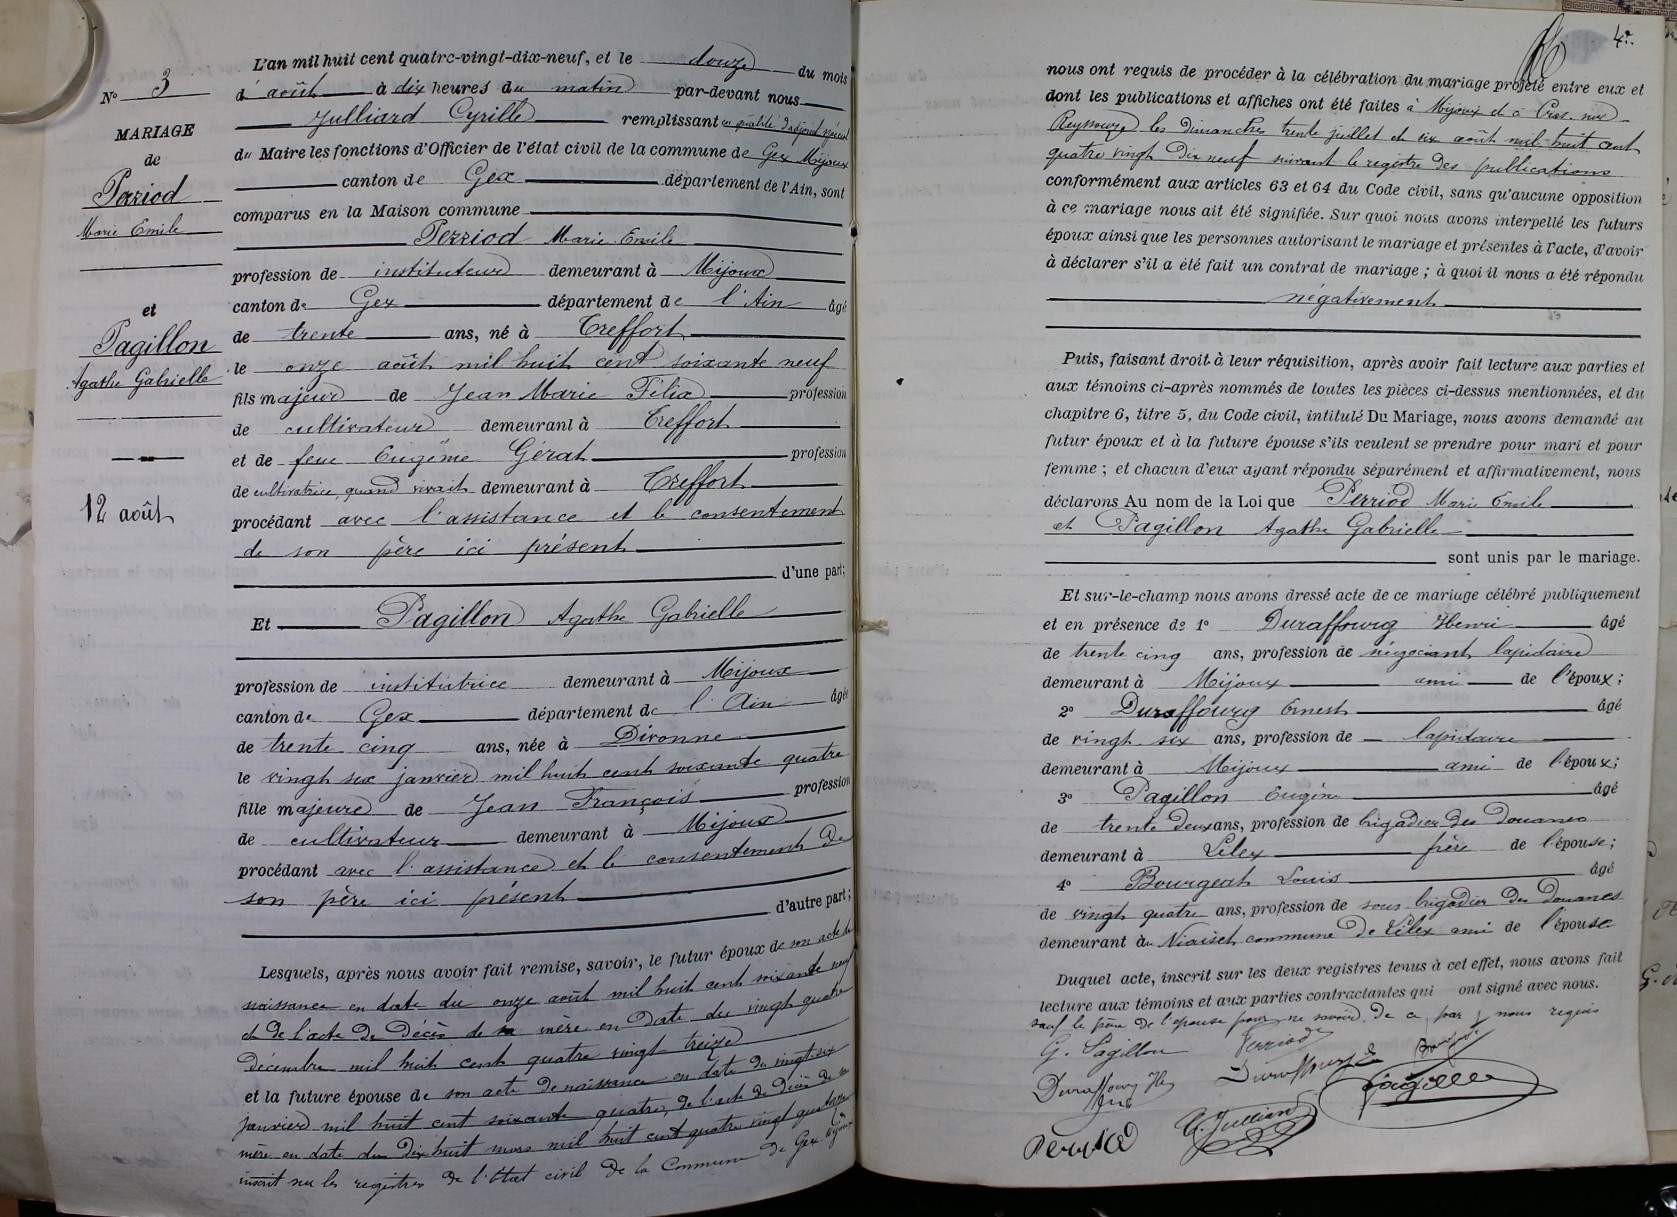 N° 3
MARIAGE
de
Perriod
Marie Emile
et
Pagillon
Agathe Gabrielle
12 août
L'an mil huit cent quatre-vingt-dix-neuf, et le douze du mois
d'août à dix heures du matin par-devant nous
Julliard Cyrille remplissant en qualité d'adjoint spécial
du Maire les fonctions d'Officier de l'état civil de la commune de Gex Mijoux
canton de Gex département de l'Ain, sont
comparus en la Maison commune
Perriod Marie Emile
profession de instituteur demeurant à Mijoux
canton de Gex département de l'Ain âgé
de trente ans, né à Treffort
le onze août mil huit cent soixante neuf
fils majeur de Jean Marie Félix profession
de cultivateur demeurant à Treffort
et de feue Eugénie Gérat profession
de cultivatrice quand vivait demeurant à Treffort
procédant avec l'assistance et le consentement
de son père ici présent
d'une part;
Et Pagillon Agathe Gabrielle
profession de institutrice demeurant à Mijoux
canton de Gex département de l'Ain âgée
de trente cinq ans, née à Divonne
le vingt six janvier mil huit cent soixante quatre
fille majeure de Jean François profession
de cultivateur demeurant à Mijoux
procédant avec l'assistance et le consentement de
son père ici présent
d'autre part;
Lesquels, après nous avoir fait remise, savoir, le futur époux de son acte de
naissance en date du onze août mil huit cent soixante neuf
et de l'acte de décès de sa mère en date du vingt quatre
décembre mil huit cent quatre vingt treize
et la future épouse de son acte de naissance en date du vingt-six
janvier mil huit cent soixante quatre, de l'acte de décès de sa
mère en date du dix huit mars mil huit cent quatre vingt quatorze
inscrit sur les registres de l'Etat civil de la Commune de Gex Mijoux
4.
nous ont requis de procéder à la célébration du mariage projeté entre eux et
dont les publications et affiches ont été faites à Mijoux et à Cras-sur
Reyssouze les dimanches trente juillet et six août mil-huit cent
quatre vingt dix neuf suivant le registre des publications
conformément aux articles 63 et 64 du Code civil, sans qu'aucune opposition
à ce mariage nous ait été signifiée. Sur quoi nous avons interpellé les futurs
époux ainsi que les personnes autorisant le mariage et présentes à l'acte, d'avoir
à déclarer s'il a été fait un contrat de mariage ; à quoi il nous a été répondu
négativement
Puis, faisant droit à leur réquisition, après avoir fait lecture aux parties et
aux témoins ci-après nommés de toutes les pièces ci-dessus mentionnées, et du
chapitre 6, titre 5, du Code civil, intitulé Du Mariage, nous avons demandé au
futur époux et à la future épouse s'ils veulent se prendre pour mari et pour
femme ; et chacun d'eux ayant répondu séparément et affirmativement, nous
déclarons Au nom de la Loi que Perriod Marie Emile
et Pagillon Agathe Gabrielle
sont unis par le mariage.
Et sur-le-champ nous avons dressé acte de ce mariage célébré publiquement
et en présence de 1° Duraffourg Henri âgé
de trente cinq ans, profession de négociant lapidaire
demeurant à Mijoux ami de l'époux;
2° Duraffourg Ernest âgé
de vingt six ans, profession de lapidaire
demeurant à Mijoux ami de l'époux;
3° Pagillon Eugène âgé
de trente deux ans, profession de brigadier des douanes
demeurant à Lélex frère de l'épouse;
4° Bourgeat Louis âgé
de vingt quatre ans, profession de sous brigadier des Douanes
demeurant au Niaiset commune de Lélex ami de l'épouse
Duquel acte, inscrit sur les deux registres tenus à cet effet, nous avons fait
lecture aux témoins et aux parties contractantes qui ont signé avec nous.
sauf le père de l'épouse pour ne savoir de ce par nous requis
G. Pagillon Perriod
Duraffourg Hri Duraffourg E
Pagillon
Perriod C. Julliard